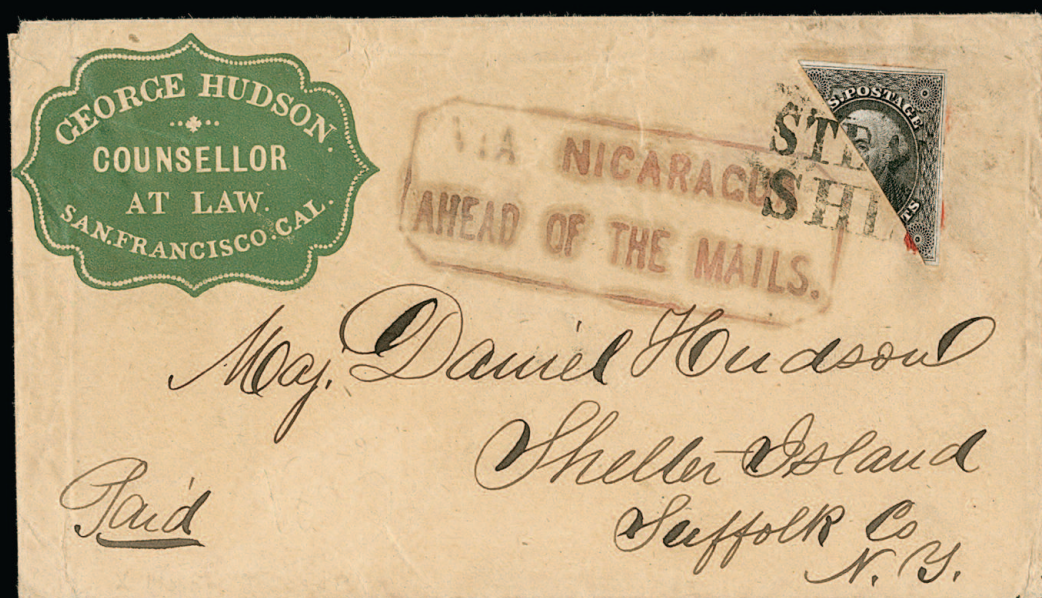 GEORGE HUDSON.
COUNSELLOR
AT LAW.
SAN.FRANCISCO.CAL.
VIA NICARAGUA
AHEAD OF THE MAILS.
S.POSTAGE
STEA
SHI
TS
Maj. Daniel Hudson
Shelter Island
Suffolk Co
N. Y.
Paid